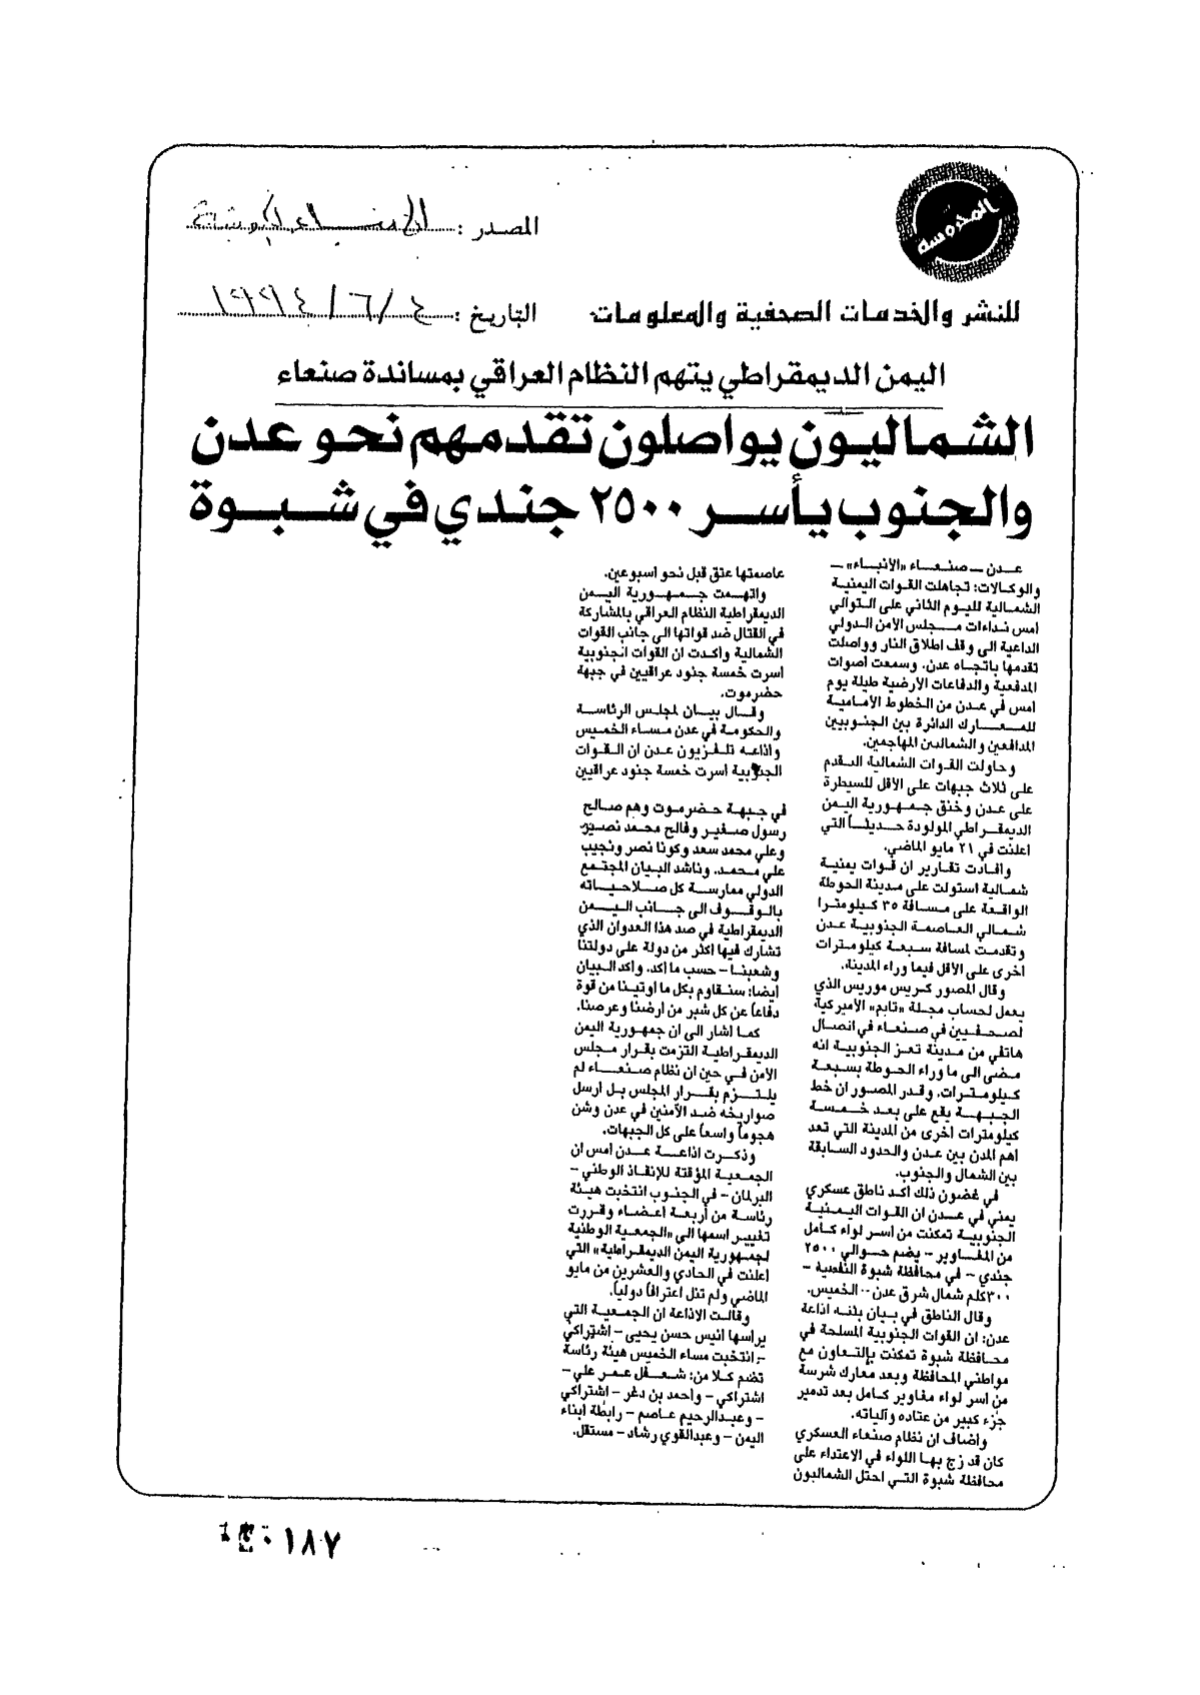 المحروسة
المصدر : الأنباء الكويتية
للنشر والخدمات الصحفية والمعلومات
التاريخ : ٤ / ٦ / ١٩٩٤
اليمن الديمقراطي يتهم النظام العراقي بمساندة صنعاء
الشماليون يواصلون تقدمهم نحو عدن
والجنوب يأسر ٢٥٠٠ جندي في شبوة
عدن - صنعاء «الأنباء» -
والوكالات: تجاهلت القوات اليمنية
الشمالية لليوم الثاني على التوالي
امس نداءات مجلس الأمن الدولي
الداعية الى وقف اطلاق النار وواصلت
تقدمها باتجاه عدن. وسمعت أصوات
المدفعية والدفاعات الأرضية طيلة يوم
امس في عدن من الخطوط الأمامية
للمعارك الدائرة بين الجنوبيين
المدافعين والشماليين المهاجمين.
وحاولت القوات الشمالية التقدم
على ثلاث جبهات على الأقل للسيطرة
على عدن وخنق جمهورية اليمن
الديمقراطي المولودة حديثاً التي
اعلنت في ٢١ مايو الماضي.
وأفادت تقارير ان قوات يمنية
شمالية استولت على مدينة الحوطة
الواقعة على مسافة ٣٥ كيلومترا
شمالي العاصمة الجنوبية عدن
وتقدمت لمسافة سبعة كيلومترات
اخرى على الأقل فيما وراء المدينة.
وقال المصور كريس موريس الذي
يعمل لحساب مجلة «تايم» الأميركية
لصحفيين في صنعاء في اتصال
هاتفي من مدينة تعز الجنوبية انه
مضى الى ما وراء الحوطة بسبعة
كيلومترات. وقدر المصور ان خط
الجبهة يقع على بعد خمسة
كيلومترات أخرى من المدينة التي تعد
اهم المدن بين عدن والحدود السابقة
بين الشمال والجنوب.
في غضون ذلك أكد ناطق عسكري
يمني في عدن ان القوات اليمنية
الجنوبية تمكنت من أسر لواء كامل
من المغاوير - يضم حوالي ٢٥٠٠
جندي - في محافظة شبوة النفطية -
٣٠٠كلم شمال شرق عدن - الخميس.
وقال الناطق في بيان بثته اذاعة
عدن: ان القوات الجنوبية المسلحة في
محافظة شبوة تمكنت بالتعاون مع
مواطني المحافظة وبعد معارك شرسة
من اسر لواء مغاوير كامل بعد تدمير
جزء كبير من عتاده وآلياته.
واضاف ان نظام صنعاء العسكري
كان قد زج بها اللواء في الاعتداء على
محافظة شبوة التي احتل الشماليون
عاصمتها عتق قبل نحو اسبوعين.
واتهمت جمهورية اليمن
الديمقراطية النظام العراقي بالمشاركة
في القتال ضد قواتها الى جانب القوات
الشمالية وأكدت ان القوات الجنوبية
اسرت خمسة جنود عراقيين في جبهة
حضرموت.
وقال بيان لمجلس الرئاسة
والحكومة في عدن مساء الخميس
وأذاعه تلفزيون عدن ان القوات
الجنوبية اسرت خمسة جنود عراقيين
في جبهة حضرموت وهم صالح
رسول صغير وفالح محمد نصير
وعلي محمد سعد وكونا نصر ونجيب
علي محمد. وناشد البيان المجتمع
الدولي ممارسة كل صلاحياته
بالوقوف الى جانب اليمن
الديمقراطية في صد هذا العدوان الذي
تشارك فيها أكثر من دولة على دولتنا
وشعبنا - حسب ما أكد. وأكد البيان
ايضا: سنقاوم بكل ما اوتينا من قوة
دفاعا عن كل شبر من أرضنا وعرضنا.
كما اشار الى ان جمهورية اليمن
الديمقراطية التزمت بقرار مجلس
الأمن في حين ان نظام صنعاء لم
يلتزم بقرار المجلس بل ارسل
صواريخه ضد الآمنين في عدن وشن
هجوماً واسعاً على كل الجبهات.
وذكرت اذاعة عدن أمس ان
الجمعية المؤقتة للإنقاذ الوطني -
البرلمان - في الجنوب انتخبت هيئة
رئاسة من أربعة أعضاء وقررت
تغيير اسمها الى «الجمعية الوطنية
لجمهورية اليمن الديمقراطية» التي
اعلنت في الحادي والعشرين من مايو
الماضي ولم تنل اعترافا دوليا.
وقالت الاذاعة ان الجمعية التي
يرأسها انيس حسن يحيى - اشتراكي
- انتخبت مساء الخميس هيئة رئاسة
تضم كلا من: شعفل عمر علي -
اشتراكي - وأحمد بن دغر - اشتراكي
- وعبدالرحيم عاصم - رابطة ابناء
اليمن - وعبدالقوي رشاد - مستقل.
٠١٨٧